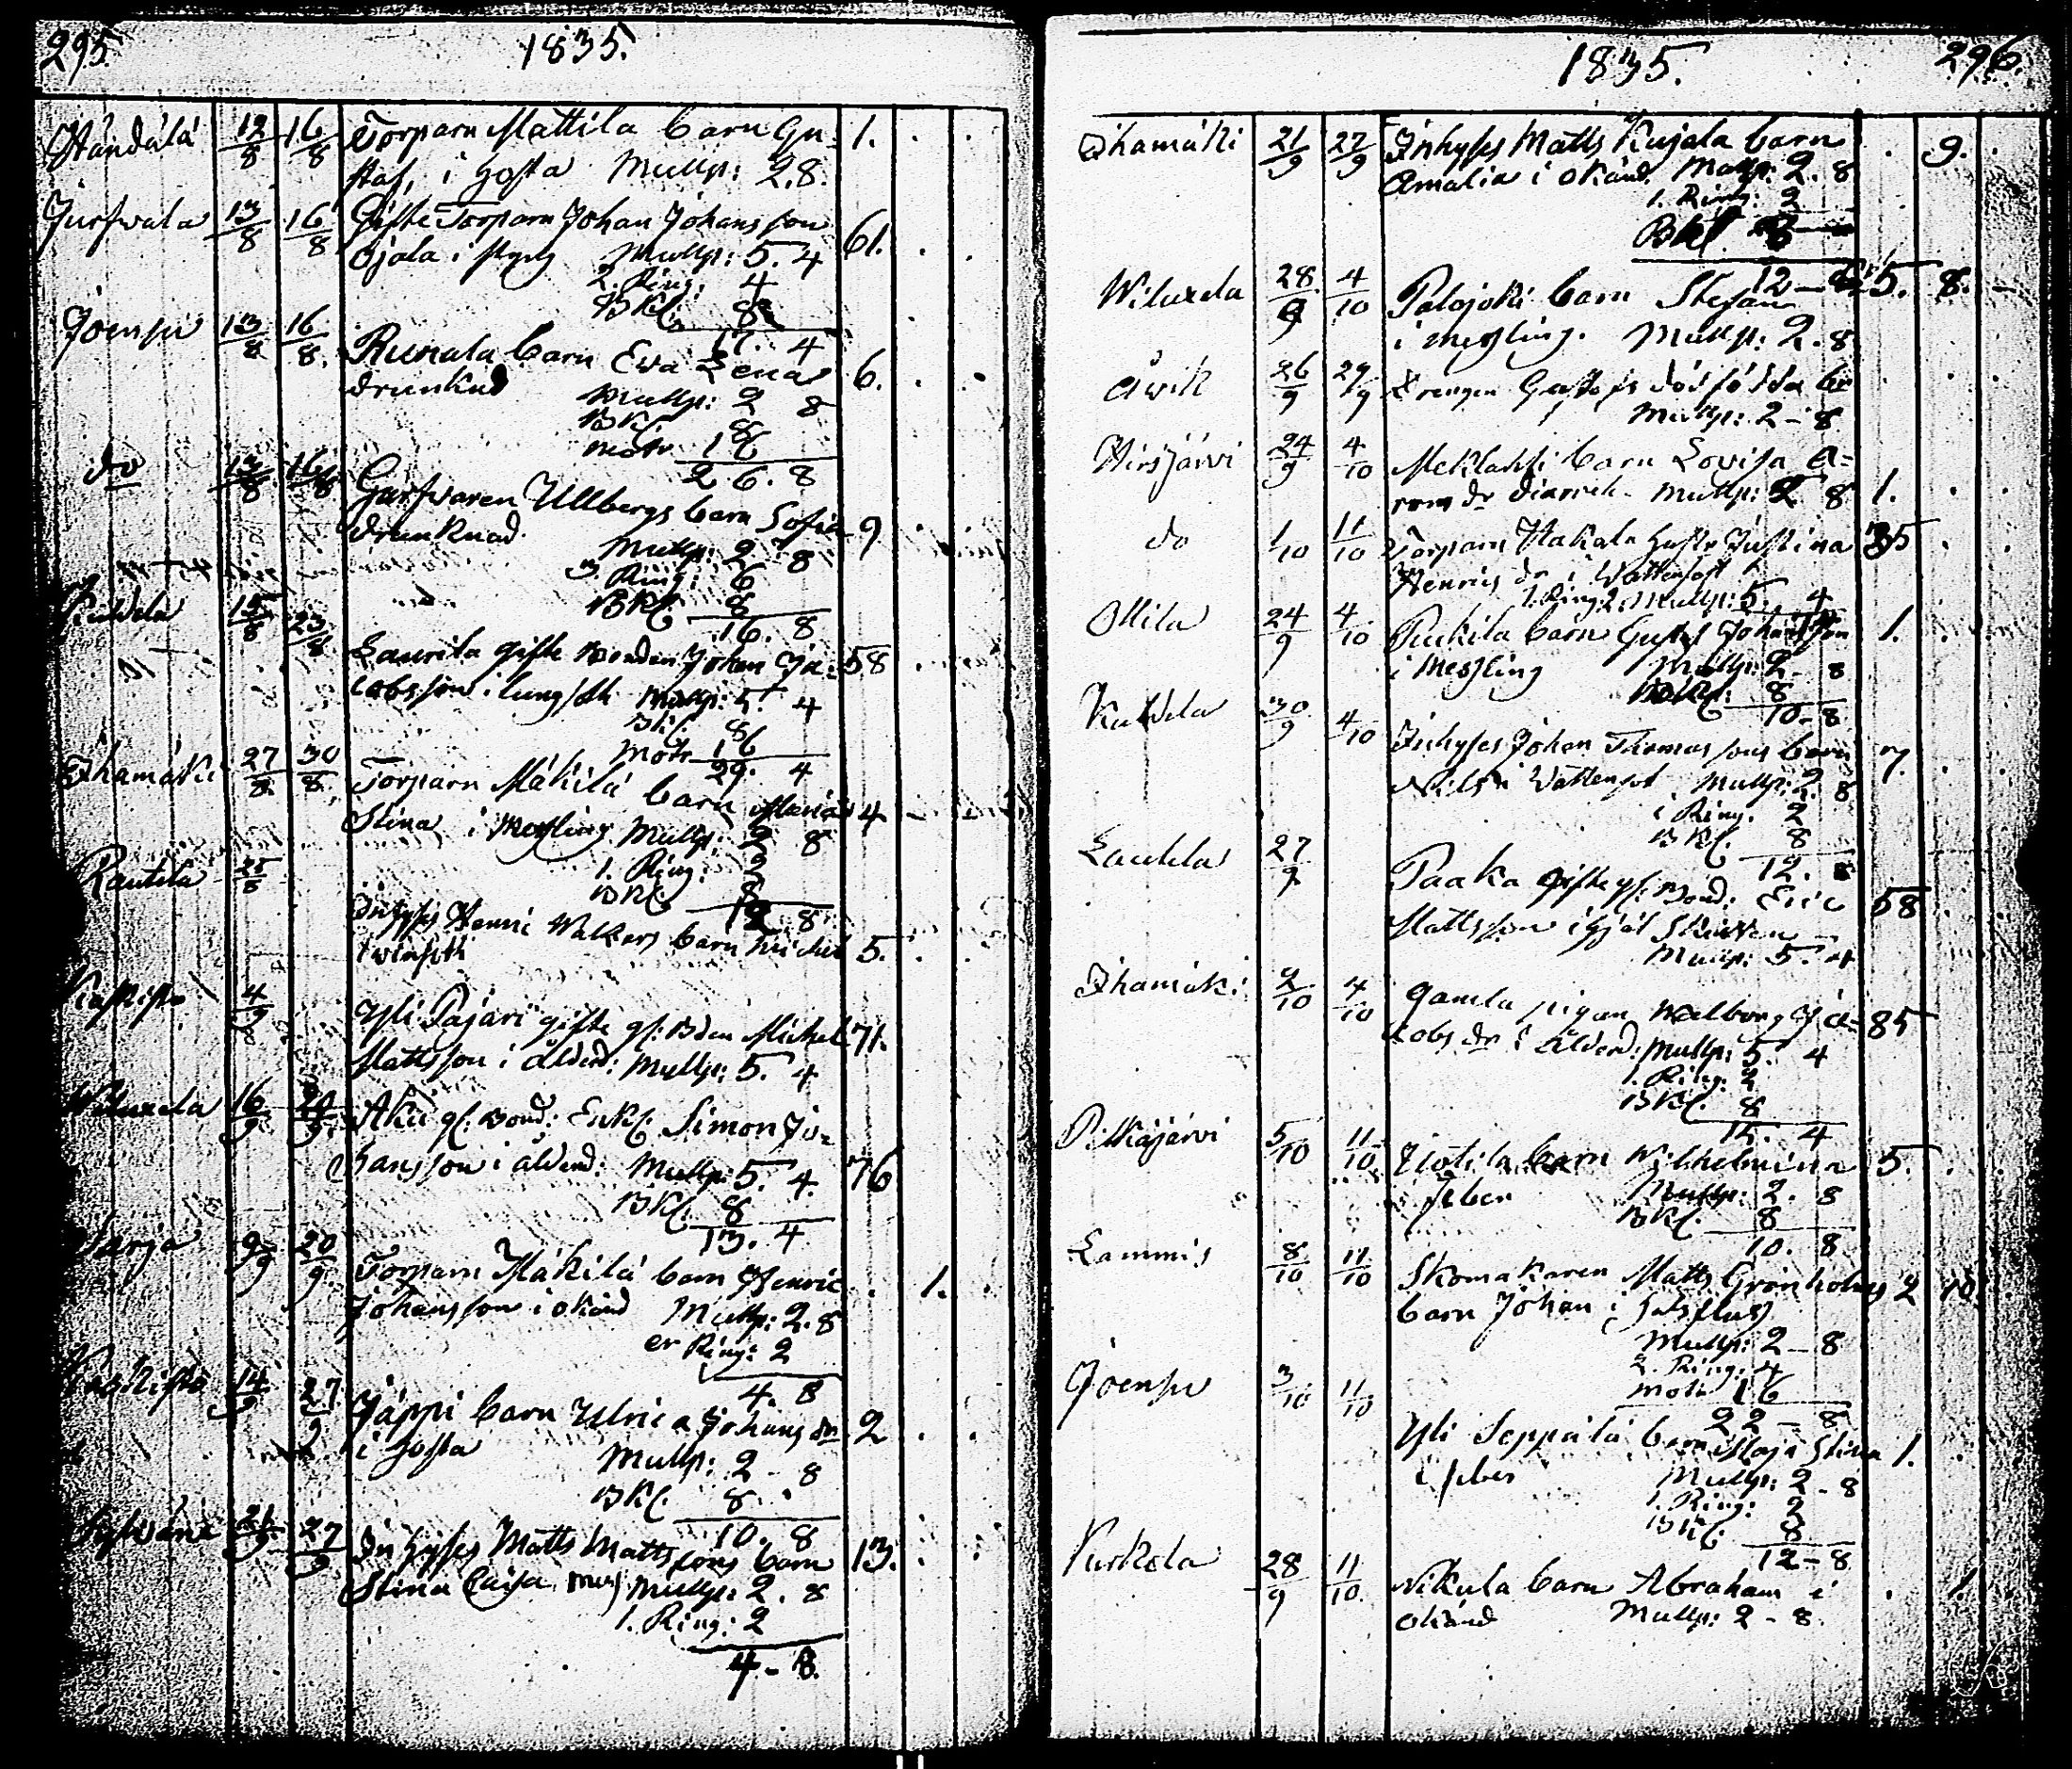 295. 1835.
Händälä 12/8 16/8 Torparn Mattila barn Gu- 1.
staf, i hosta Mullp: 2.8.
Jurfwala 13/8 16/8 Gifte Torparn Johan Johansson 61.
Ojala i styng Mullp: 5. 4
2. Ring: 4
BKl. 8
17. 4
Joensu 13/8 16/8. Runala barn Ewa Lena 6.
drunknad Mullp: 2 8
BKl. 8
Motr 16
26. 8
do 13/8 16/8 Garfvaren Ullbergs barn Sofia 9
drunknad. Mullp: 2 8
3. Ring: 6
BKl. 8
16. 8
15/8 23/8 Laurila gifte Bonden Johan Ja- 58
cobsson i lungsot Mullp: 5. 4
BKl. 8
Motr 16
29. 4
Ihamäki 27/8 30/8 Torparn Mäkilä barn Maria 4
Stina i messling Mullp: 2 8
1. Ring: 2
BKl. 8
12 8
Rautila 25/8 Inhyses Henric Walkers barn Michel 5.
4/9 Yli Pajari gifte gl: Bden Michel 71.
Mattsson i ålderd: Mullp: 5. 4
Wiluxela 16/9 20/9 Aku gl. Bond: Enkl. Simon Jo-
hansson i ålderd: Mullp: 5. 4. 76
BKl. 8
13. 4
9/9 20/9 Torparn Mäkilä barn Henric . 1.
Johansson i okänd Mullp: 2. 8
en Ring: 2
4. 8
14/9 27/9 Jäppi barn Ulrica Johans dr 2
i hosta Mullp: 2 - 8
BKl. 8.
10. 8
27/9 Inhyses Matts Mattssons barn 13.
Stina Caisa, mess Mullp: 2. 8
1. Ring: 2
4 - 8.
1835. 296.
Ihamäki 21/9 27/9 Inhyses Matts Kujala barn . 9.
Amalia i okänd. Mullp: 2. 8
1. Ring: 2
BKl. 8
12 -
Wiluxela 28/9 4/10 Palojoki barn Stefan 5. 8.
i messling. Mullp: 2. 8
Åwik 26/9 27/9 Drengen Gustafs dödfödda bn
Mullp: 2 - 8
Hirsjärvi 24/9 4/10 Meklahti barn Lovisa A-
rons dr diarreh. Mullp: 2 8 1.
do 1/10 11/10 Torparn Hakala hustr Justina 35
Henrics dr i Wattensot
1. Ring: 2. Mullp: 5. 4
Ollila 24/9 4/10 Puckila barn Gustaf Johansson 1.
i messling Mullp: 2 - 8
BKl. 8
10 - 8
30/9 4/10 Inhyses Johan Thomassons barn 7.
Nils i Wattensot Mullp: 2. 8
1 Ring. 2
BKl. 8
12. 8
Laukela 27/9 Paaka gifte gl: Bond: Eric 58
Mattsson i
Mullp: 5. 4
Ihamäki 2/10 4/10 Gamla pigan Walborg Ja- 85
cobs dr i ålderd: Mullp: 5. 4
1. Ring: 2
BKl. 8
15. 4
Pitkäjärvi 5/10 11/10 barn Wilhelmina 5.
i feber Mullp: 2. 8
BKl. 8
10. 8
Lammis 8/10 11/10 Skomakaren Matts Grönholms 2 10
barn Johan i halsfluss
Mullp: 2 - 8
2. Ring: 4
Motr 16
22 - 8
Joensu 3/10 11/10 Yli Seppälä barn Maja Stina 1.
i feber Mullp: 2 - 8
1. Ring: 2
BKl. 8
12 - 8
Kurkela 28/9 11/10. Nikula barn Abraham i . 1.
okänd Mullp: 2 - 8.